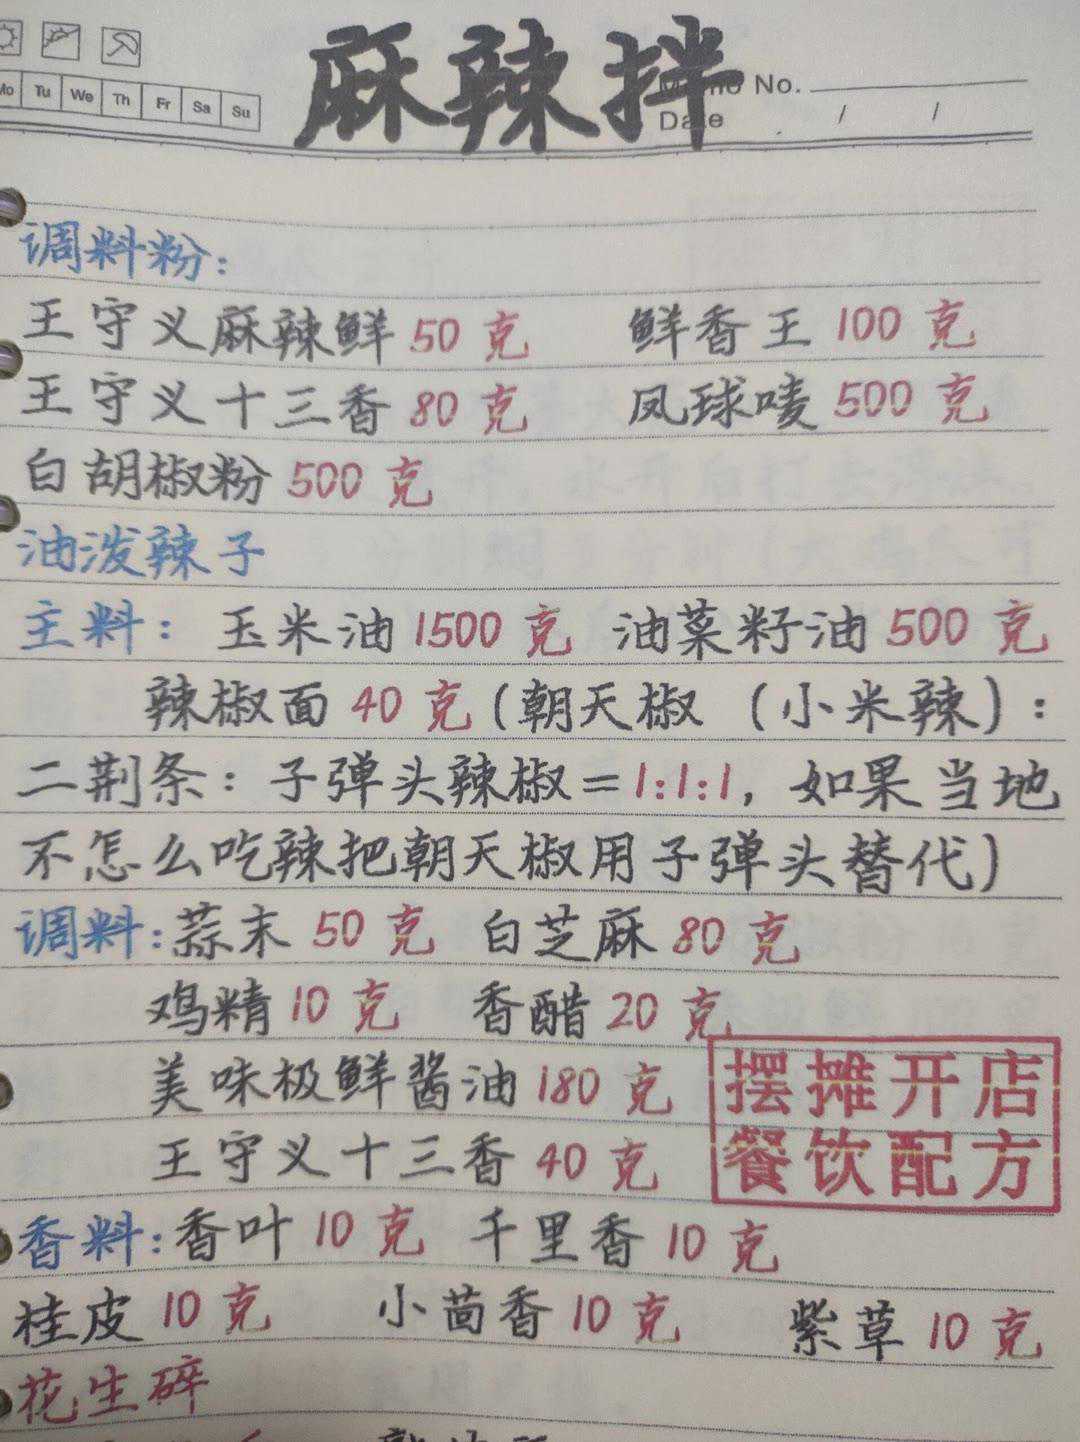 麻辣拌
Mo Tu We Th Fr Sa Su
Memo No.
Date / /
调料粉:
王守义麻辣鲜50克 鲜香王100克
王守义十三香80克 凤球唛500克
白胡椒粉500克
油泼辣子
主料: 玉米油1500克 油菜籽油500克
辣椒面40克(朝天椒(小米辣):
二荆条:子弹头辣椒=1:1:1,如果当地
不怎么吃辣把朝天椒用子弹头替代)
调料:蒜末50克 白芝麻80克
鸡精10克 香醋20克
美味极鲜酱油180克
王守义十三香40克
摆摊开店
餐饮配方
香料:香叶10克 千里香10克
桂皮10克 小茴香10克 紫草10克
花生碎